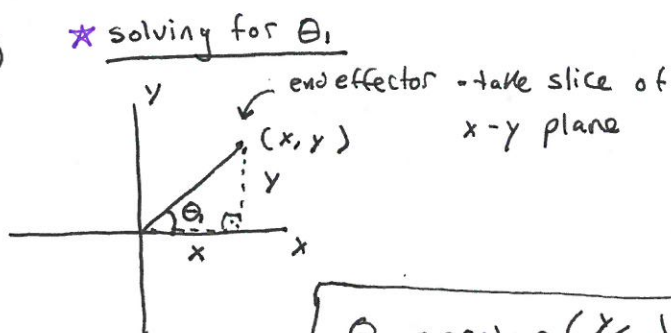 ☆ solving for θ₁
y
end effector - take slice of
x-y plane
(x, y)
y
θ₁
x
x